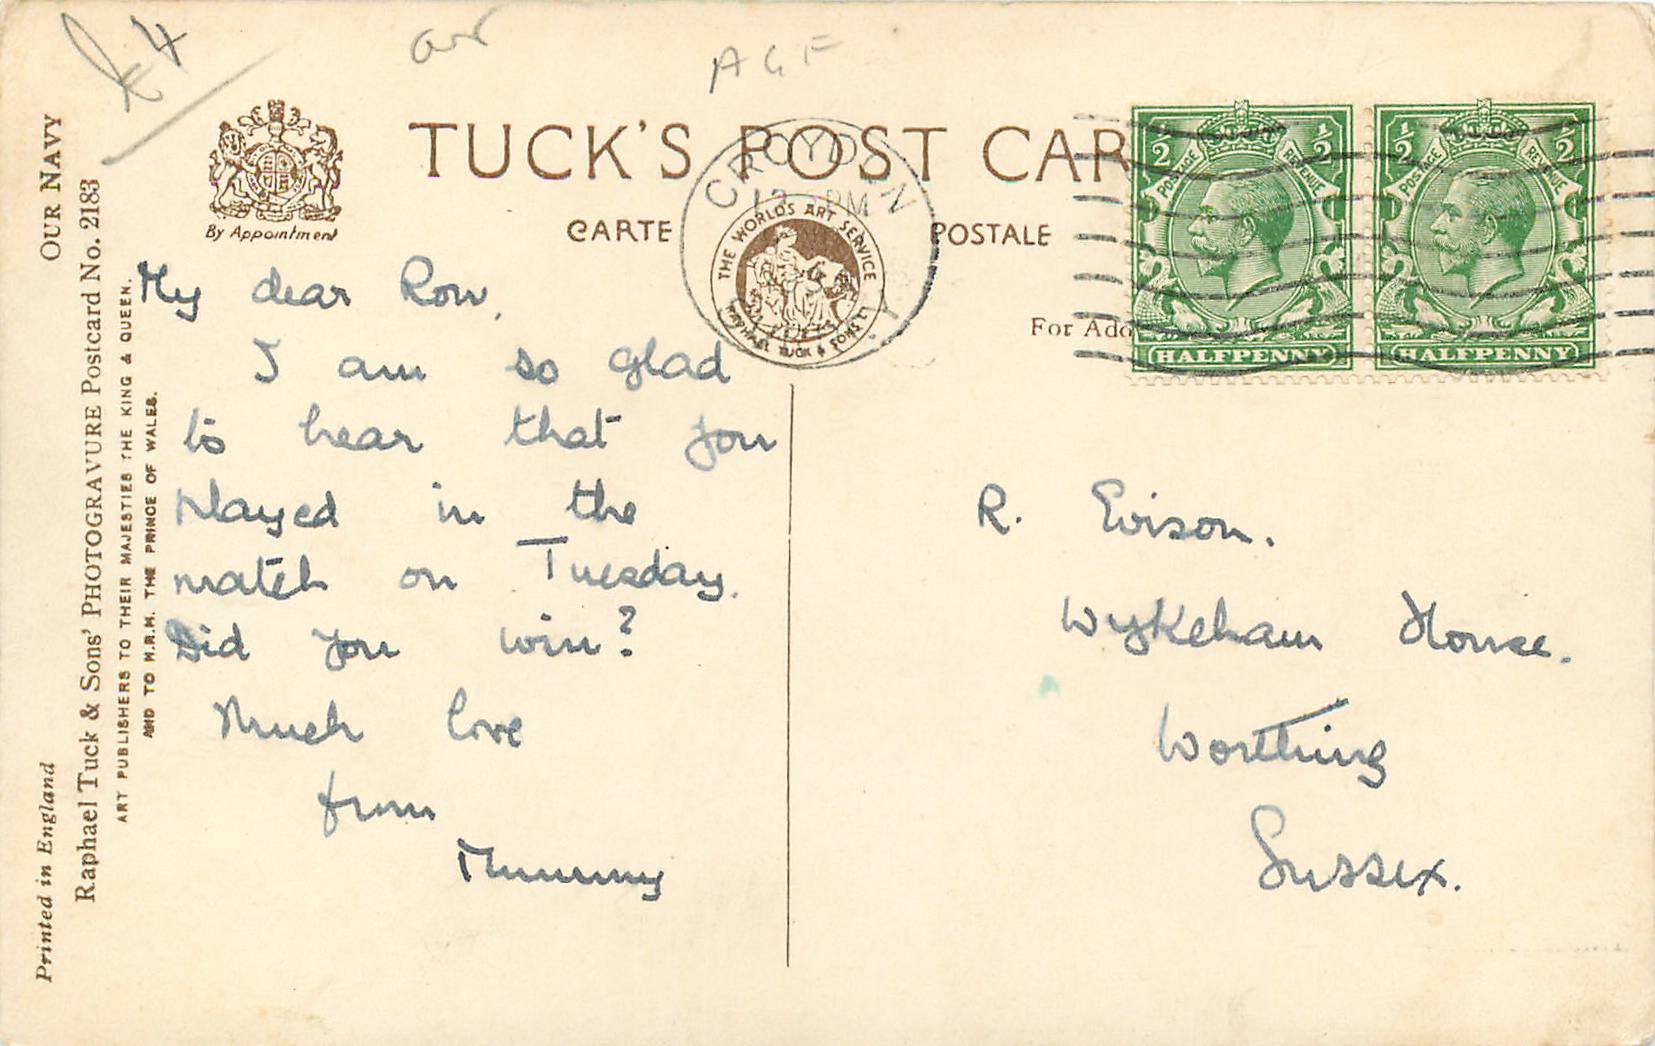 £4
AGF
TUCK'S POST CAR
CARTE POSTALE
By Appointment
CROYDON
12 PM
THE WORLD'S ART SERVICE
RAPHAEL TUCK & SONS LD
For Add
1/2 POSTAGE REVENUE 1/2
HALFPENNY
1/2 POSTAGE REVENUE 1/2
HALFPENNY
OUR NAVY
Printed in England
Raphael Tuck & Sons' PHOTOGRAVURE Postcard No. 2183
ART PUBLISHERS TO THEIR MAJESTIES THE KING & QUEEN.
AND TO H.R.H. THE PRINCE OF WALES.
My dear Row,
I am so glad
to hear that you
played in the
match on Tuesday.
Did you win?
Much love
from
Mummy
R. Evison.
Wykeham House.
Worthing
Sussex.